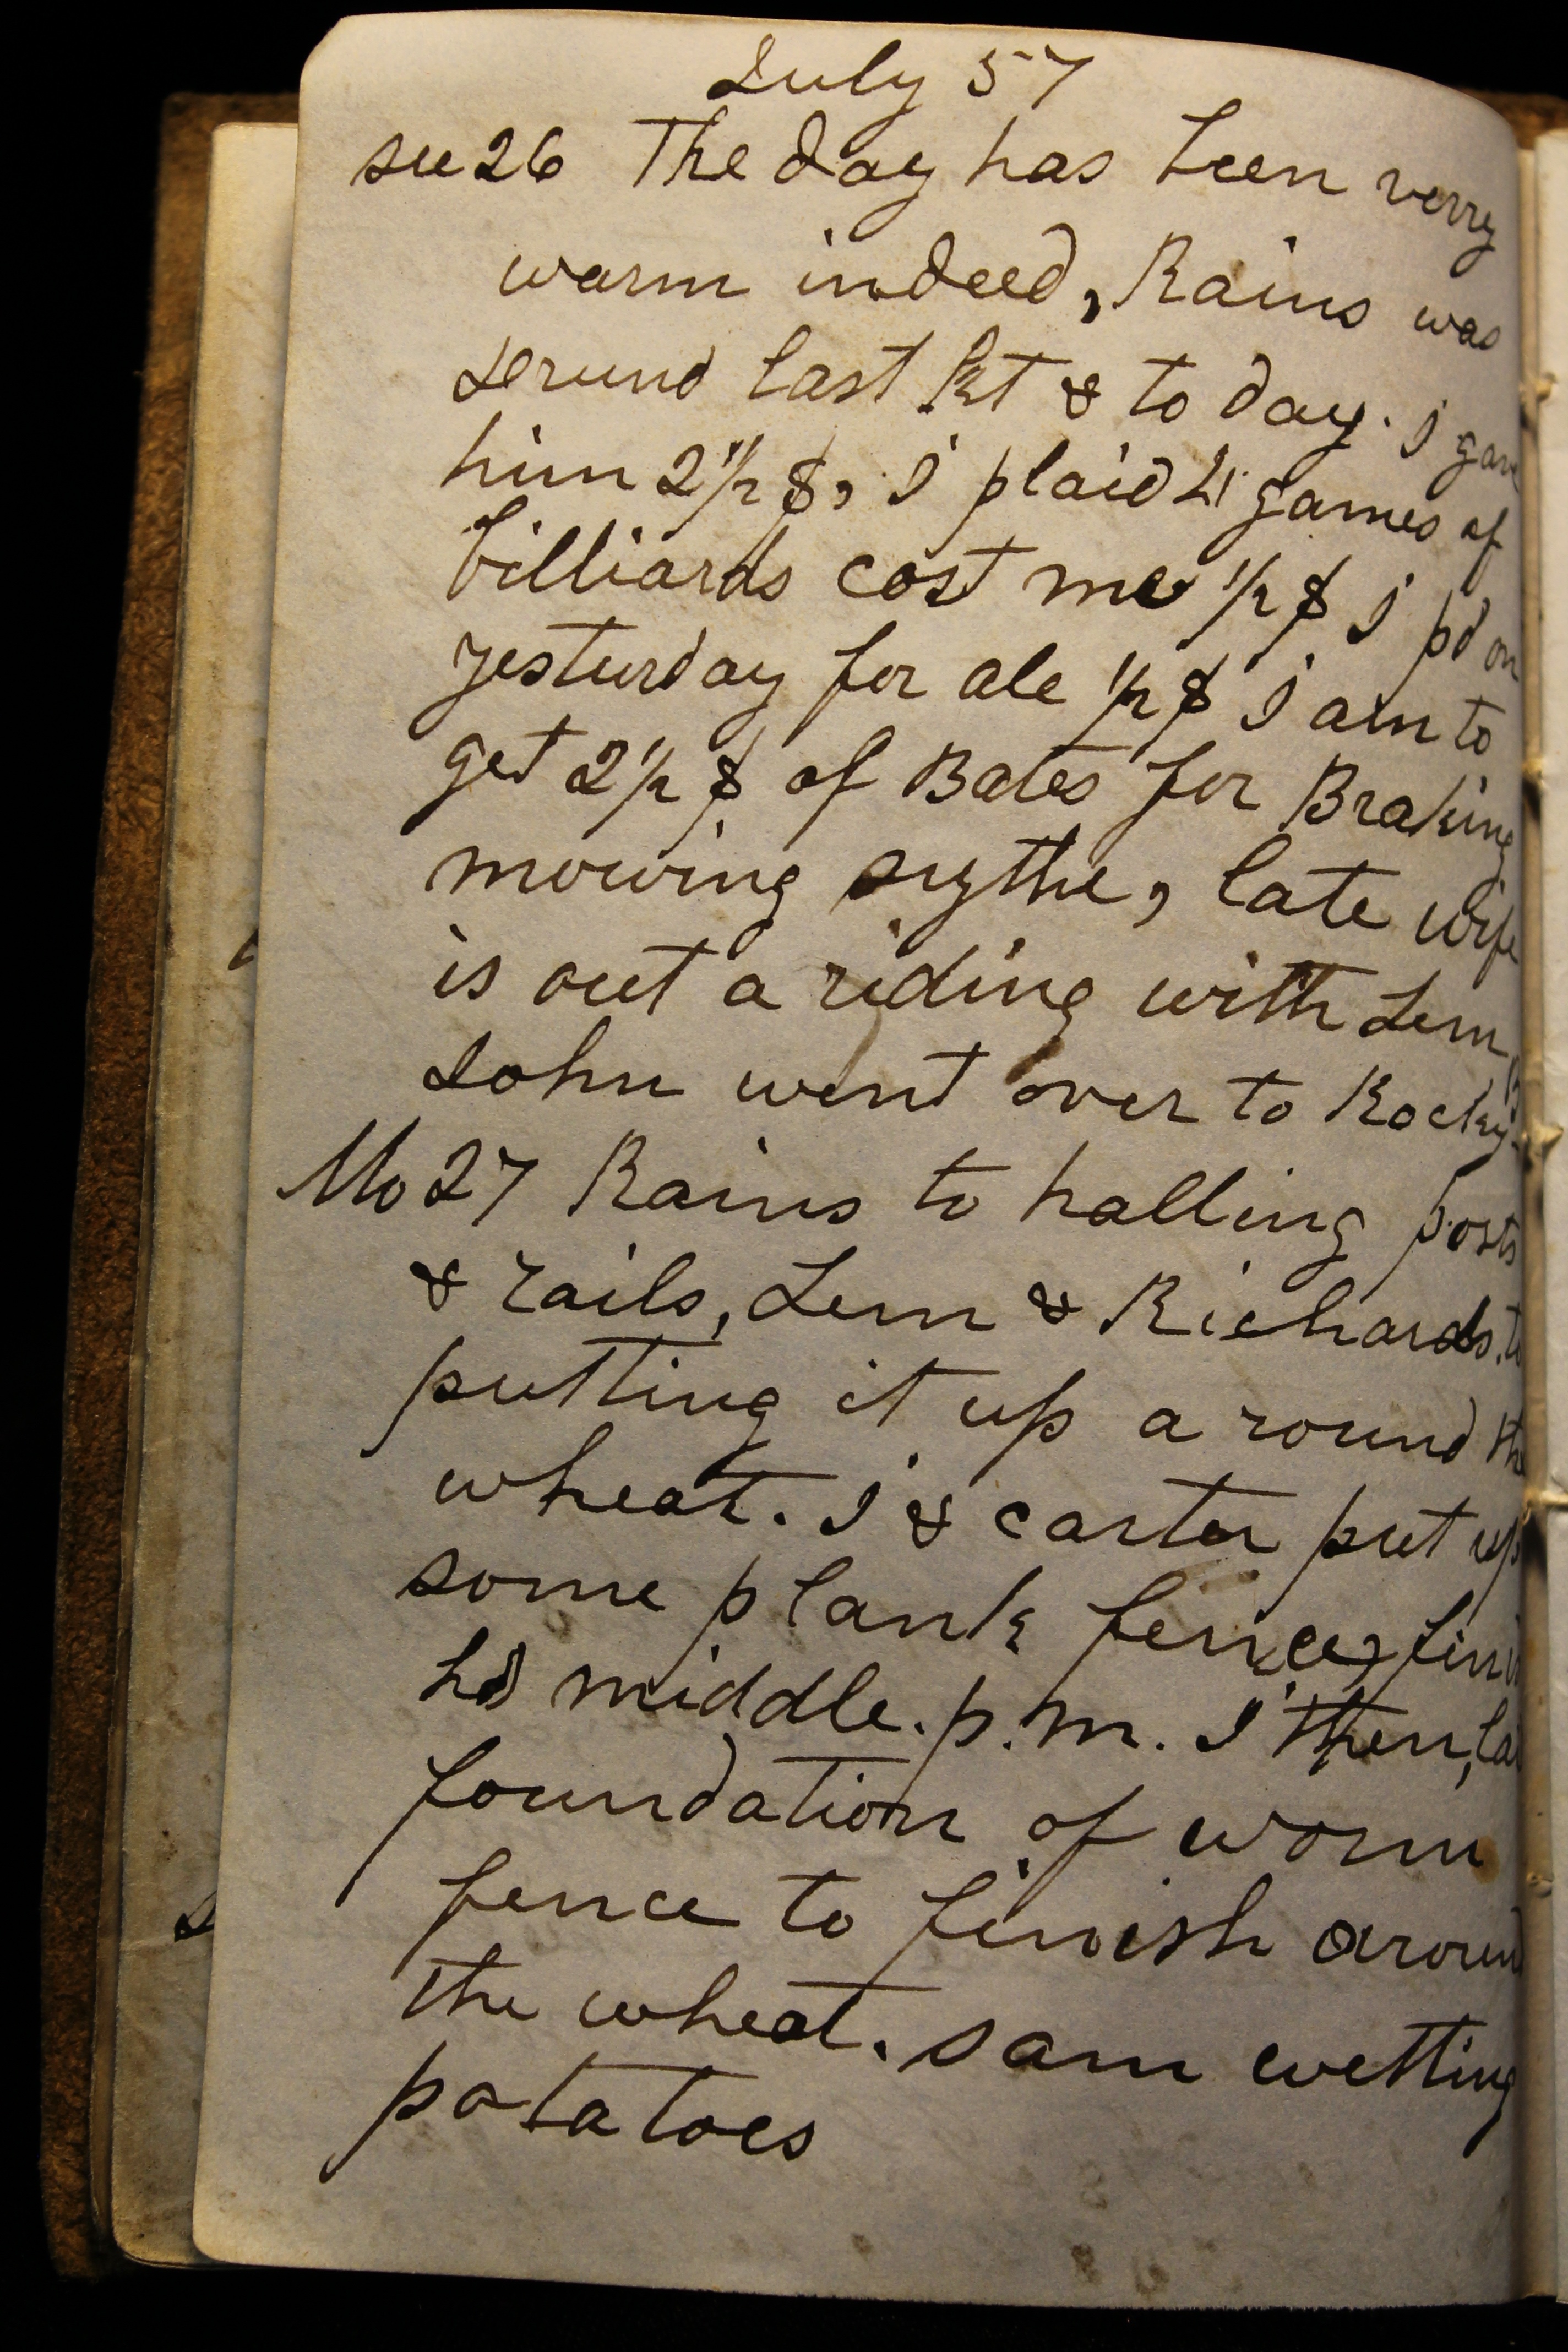 July 57
su 26 The day has been verry
warm indeed, Rains was
last & to day. I gave
him 2 1/2 $, I plaid 4 games of
billiards cost me 1/2 $ I pd on
yesturday for ale 1/2 $ I am to
get 2 1/2 $ of Bates for Braking
mowing sythe, late wife
is out a riding with Lem,
John went over to Rocky
Mo 27 Rains to halling posts
& rails, Lem & Richards. to
putting it up a round the
wheat. I & carter put up
some plank fence,
middle. p.m. I then,
foundation of worm
fence to finish around
the wheat. Sam wetting
potatoes